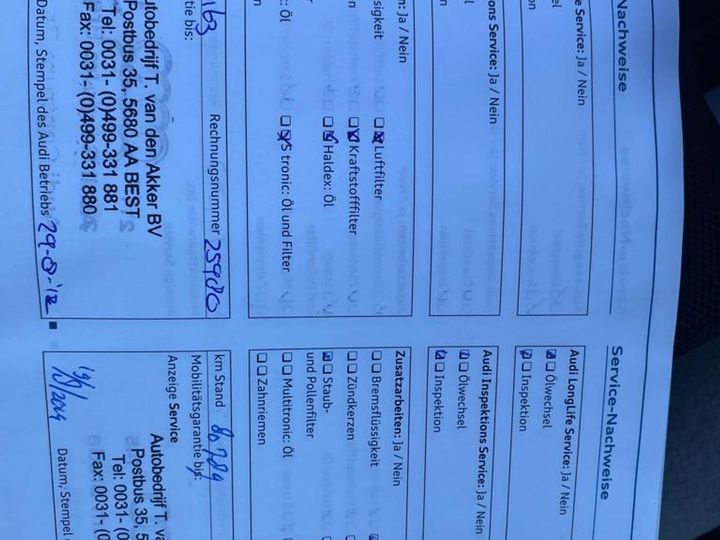 Nachweise
e Service: Ja / Nein
el
ons Service: Ja / Nein
el
n: Ja / Nein
sigkeit
Luftfilter
Kraftstofffilter
Haldex: Öl
: Öl
S tronic: Öl und Filter
163
Rechnungsnummer 259080
tie bis:
utobedrijf T. van den Akker BV
Postbus 35, 5680 AA BEST
Tel: 0031- (0)499-331 881
Fax: 0031- (0)499-331 880
Datum, Stempel des Audi Betriebs 29-8-'12
Service-Nachweise
Audi LongLife Service: Ja / Nein
Ölwechsel
Inspektion
Audi Inspektions Service: Ja / Nein
Ölwechsel
Inspektion
Zusatzarbeiten: Ja / Nein
Bremsflüssigkeit
Zündkerzen
Staub-
und Pollenfilter
Multitronic: Öl
Zahnriemen
km Stand 80789
Mobilitätsgarantie bis:
Anzeige Service
Autobedrijf T. va
Postbus 35, 5
Tel: 0031- (0
Fax: 0031- (0
Datum, Stempel